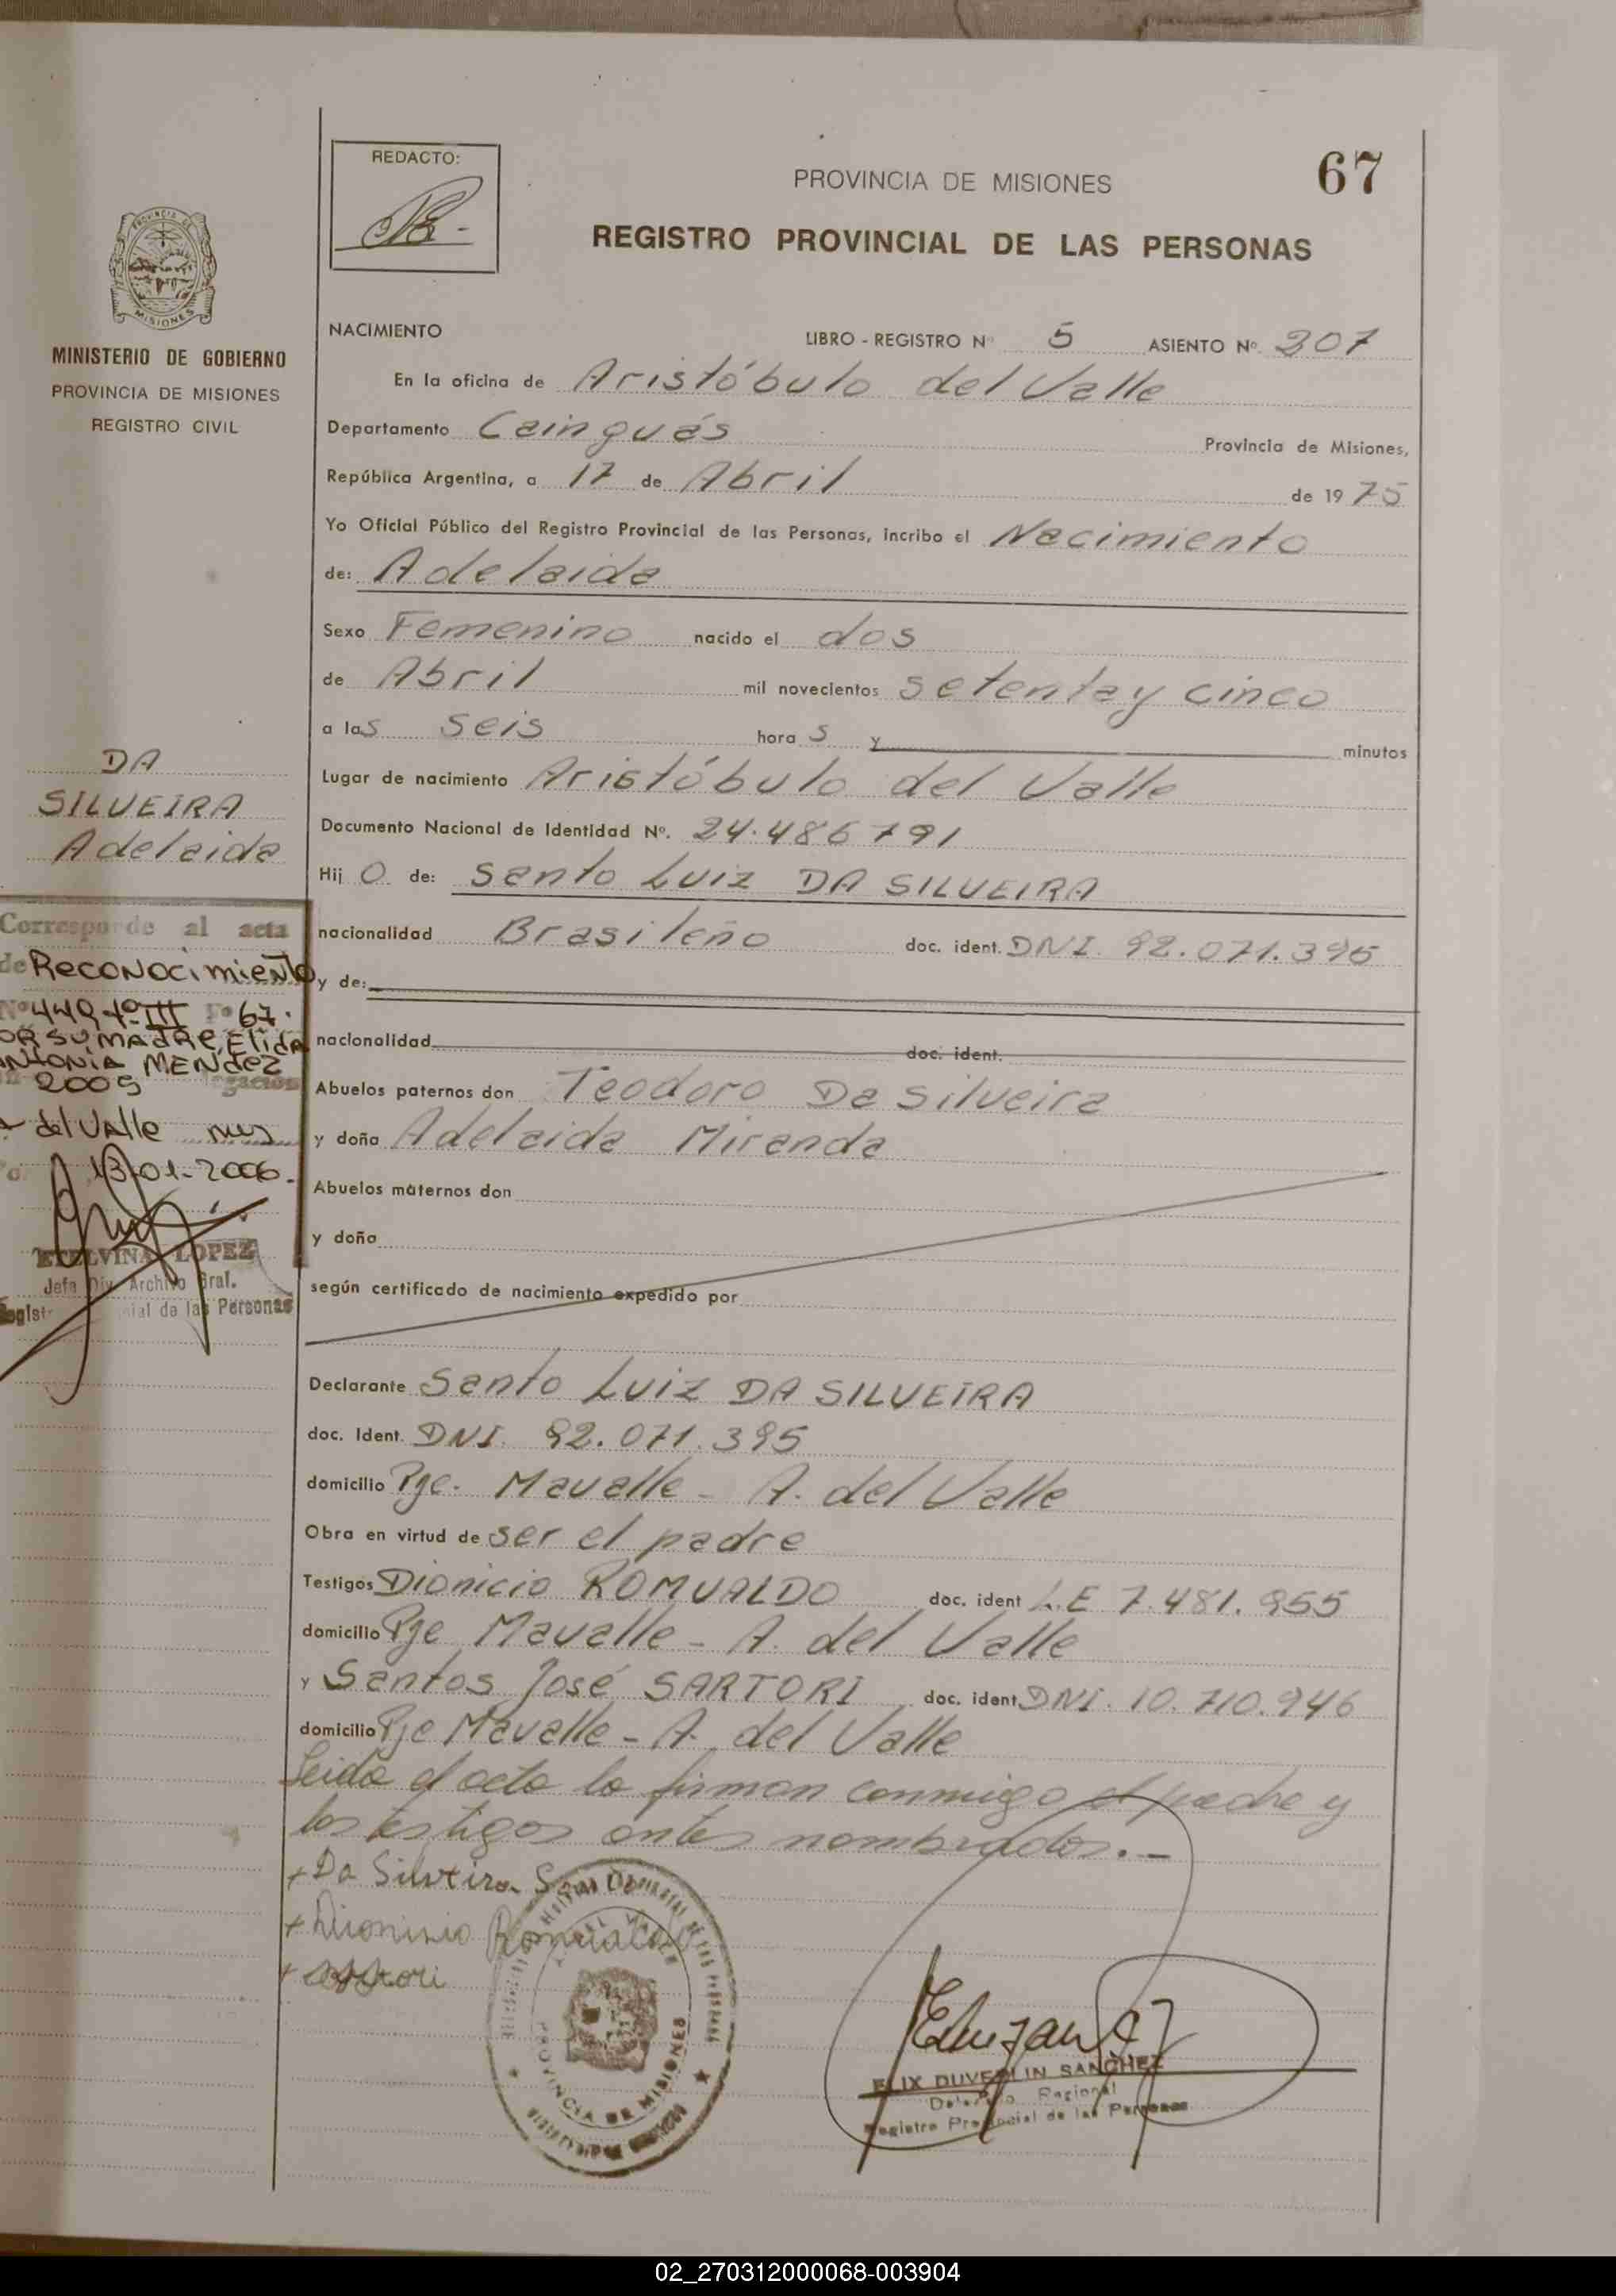 REDACTO:
67
PROVINCIA DE MISIONES
REGISTRO PROVINCIAL DE LAS PERSONAS
PROVINCIA DE
MISIONES
MINISTERIO DE GOBIERNO
PROVINCIA DE MISIONES
REGISTRO CIVIL
NACIMIENTO LIBRO - REGISTRO Nº 5 ASIENTO Nº 307
En la oficina de Aristóbulo del Valle
Departamento Cainguás Provincia de Misiones,
República Argentina, a 17 de Abril de 1975
Yo Oficial Público del Registro Provincial de las Personas, incribo el Nacimiento
de: Adelaida
Sexo Femenino nacido el dos
de Abril mil novecientos setenta y cinco
a las seis horas y minutos
Lugar de nacimiento Aristóbulo del Valle
Documento Nacional de Identidad Nº. 24.486791
Hijo de: Santo Luiz DA SILVEIRA
nacionalidad Brasileño doc. ident. DNI. 92.071.395
y de:
nacionalidad doc. ident.
Abuelos paternos don Teodoro Da Silveira
y doña Adelaida Miranda
Abuelos maternos don
y doña
según certificado de nacimiento expedido por
Declarante Santo Luiz DA SILVEIRA
doc. Ident. DNI. 92.071.395
domicilio Pje. Mavalle - A. del Valle
Obra en virtud de ser el padre
Testigos Dionicio ROMUALDO doc. ident L.E 7.481.955
domicilio Pje Mavalle - A. del Valle
y Santos José SARTORI doc. ident DNI. 10.710.946
domicilio Pje Mavalle - A. del Valle
Leida el acta la firman conmigo el padre y
los testigos antes nombrados.-
+ Da Silveira
+ Dionisio Romualdo
+ Sartori
PROVINCIA DE MISIONES
ELIX DUVERLIN SANCHEZ
Delegado Regional
Registro Provincial de las Personas
DA
SILVEIRA
Adelaida
Corresponde al acta
de Reconocimiento
Nº 449 Tº III Fº 67.
OR SU MADRE, Elida
ANTONIA MENdEZ
2005
del Valle Mns
13-01-2006.
ETELVINA LOPEZ
Jefa Div. Archivo Gral.
de las Personas
02_270312000068-003904